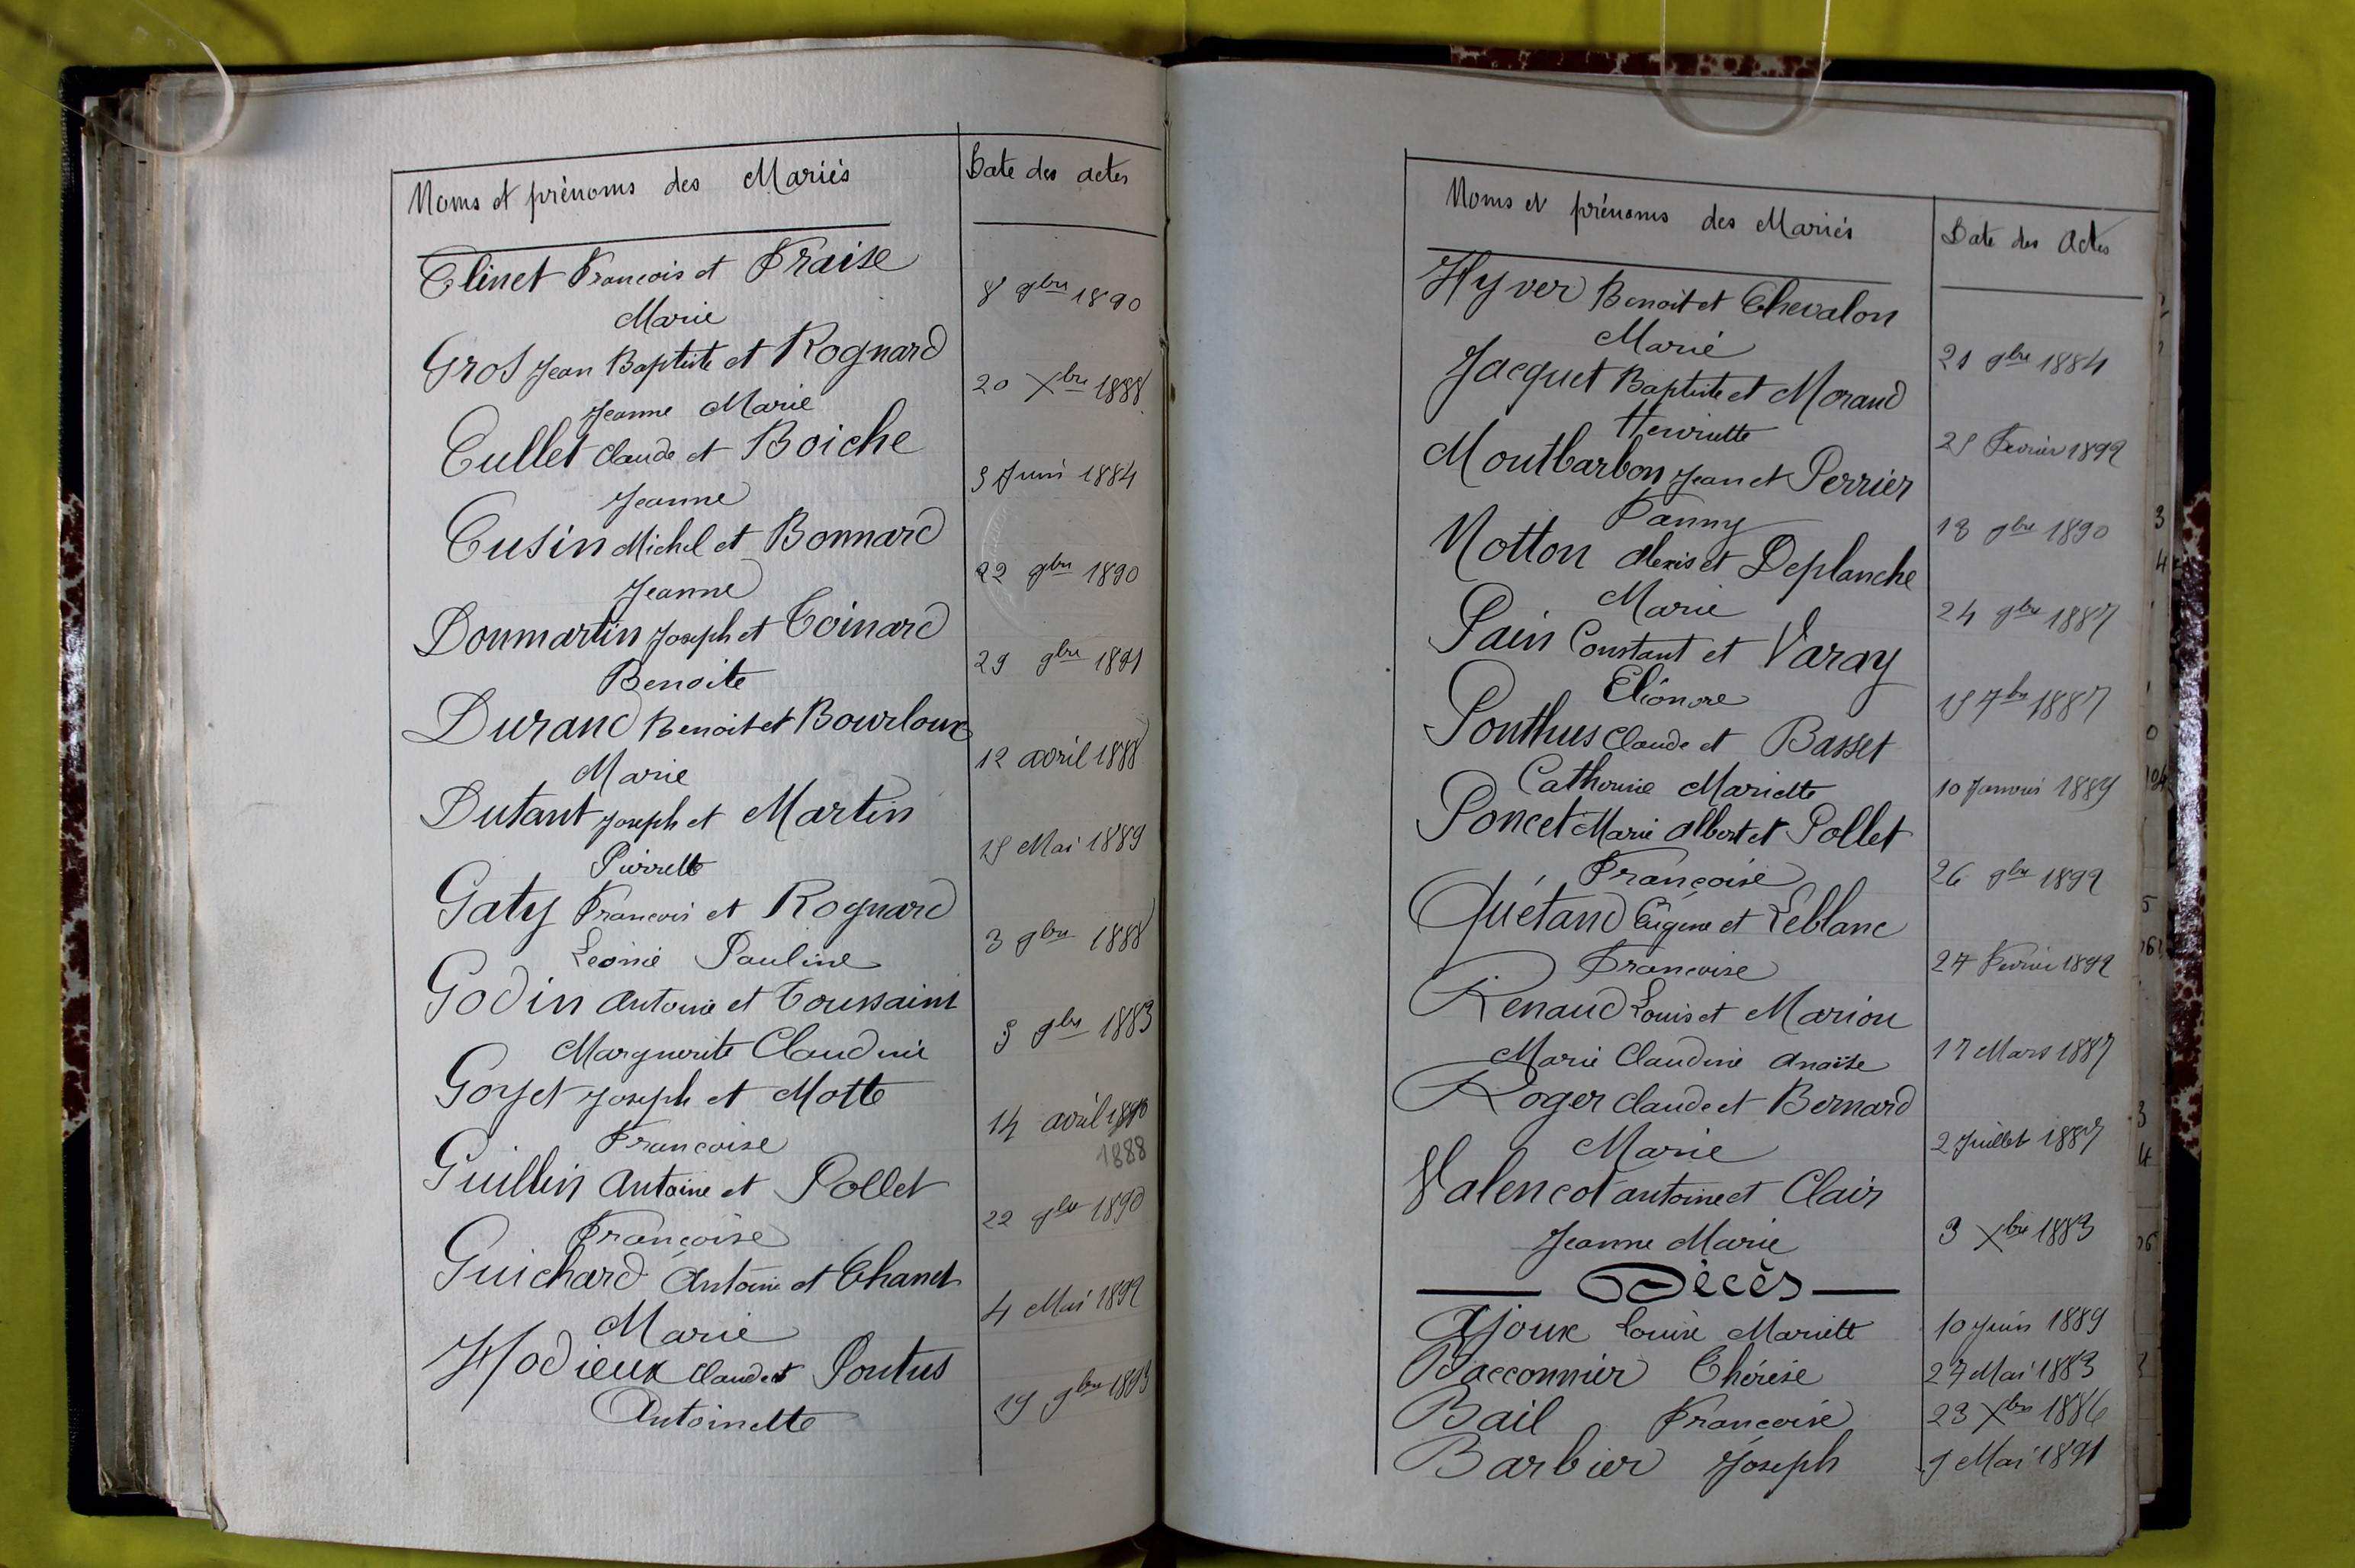 Noms et prénoms des Mariés
Date des actes
Clinet François et Fraise
Marie
8 9bre 1890
Gros Jean Baptiste et Rognard
Jeanne Marie
20 Xbre 1888
Cullet Claude et Boiche
Jeanne
Juin 1884
Cusin Michel et Bonnard
Jeanne
22 9bre 1890
Donmartin Joseph et Coinard
Benoite
29 9bre 1891
Durand Benoit et Bourloux
Marie
12 avril 1888
Dutant Joseph et Martin
Pierrette
Mai 1889
Gaty François et Rognard
Léonie Pauline
3 9bre 1888
Godin Antoine et Toussaint
Marguerite Claudine
9bre 1883
Goyet Joseph et Motte
Françoise
14 avril
1888
Guillin Antoine et Pollet
Françoise
22 9bre 1890
Guichard Antoine et Chanet
Marie
4 Mai 1892
Hodieux Claude et Pontus
Antoinette
19 9bre 1893
Noms et prénoms des Mariés
Date des Actes
Hyver Benoit et Chevalon
Marie
21 9bre 1884
Jacquet Baptiste et Morand
Henriette
Février 1892
Montbarbon Jean et Perrier
Fanny
18 9bre 1890
Notton Alexis et Deplanche
Marie
24 9bre 1887
Pain Constant et Varay
Eléonore
7bre 1887
Ponthus Claude et Basset
Catherine Mariette
10 Janvier 1889
Poncet Marie Albert et Pollet
Françoise
26 9bre 1892
Quétand Eugène et Leblanc
Françoise
27 Février 1892
Renaud Louis et Marion
Marie Claudine Anaïse
17 Mars 1887
Roger Claude et Bernard
Marie
2 Juillet 1887
Valencot antoine et Clair
Jeanne Marie
3 Xbre 1883
Décès
Ajoux Louise Mariette
10 Juin 1889
Bacconnier Thérèse
27 Mai 1883
Bail Françoise
23 Xbre 1886
Barbier Joseph
9 Mai 1891